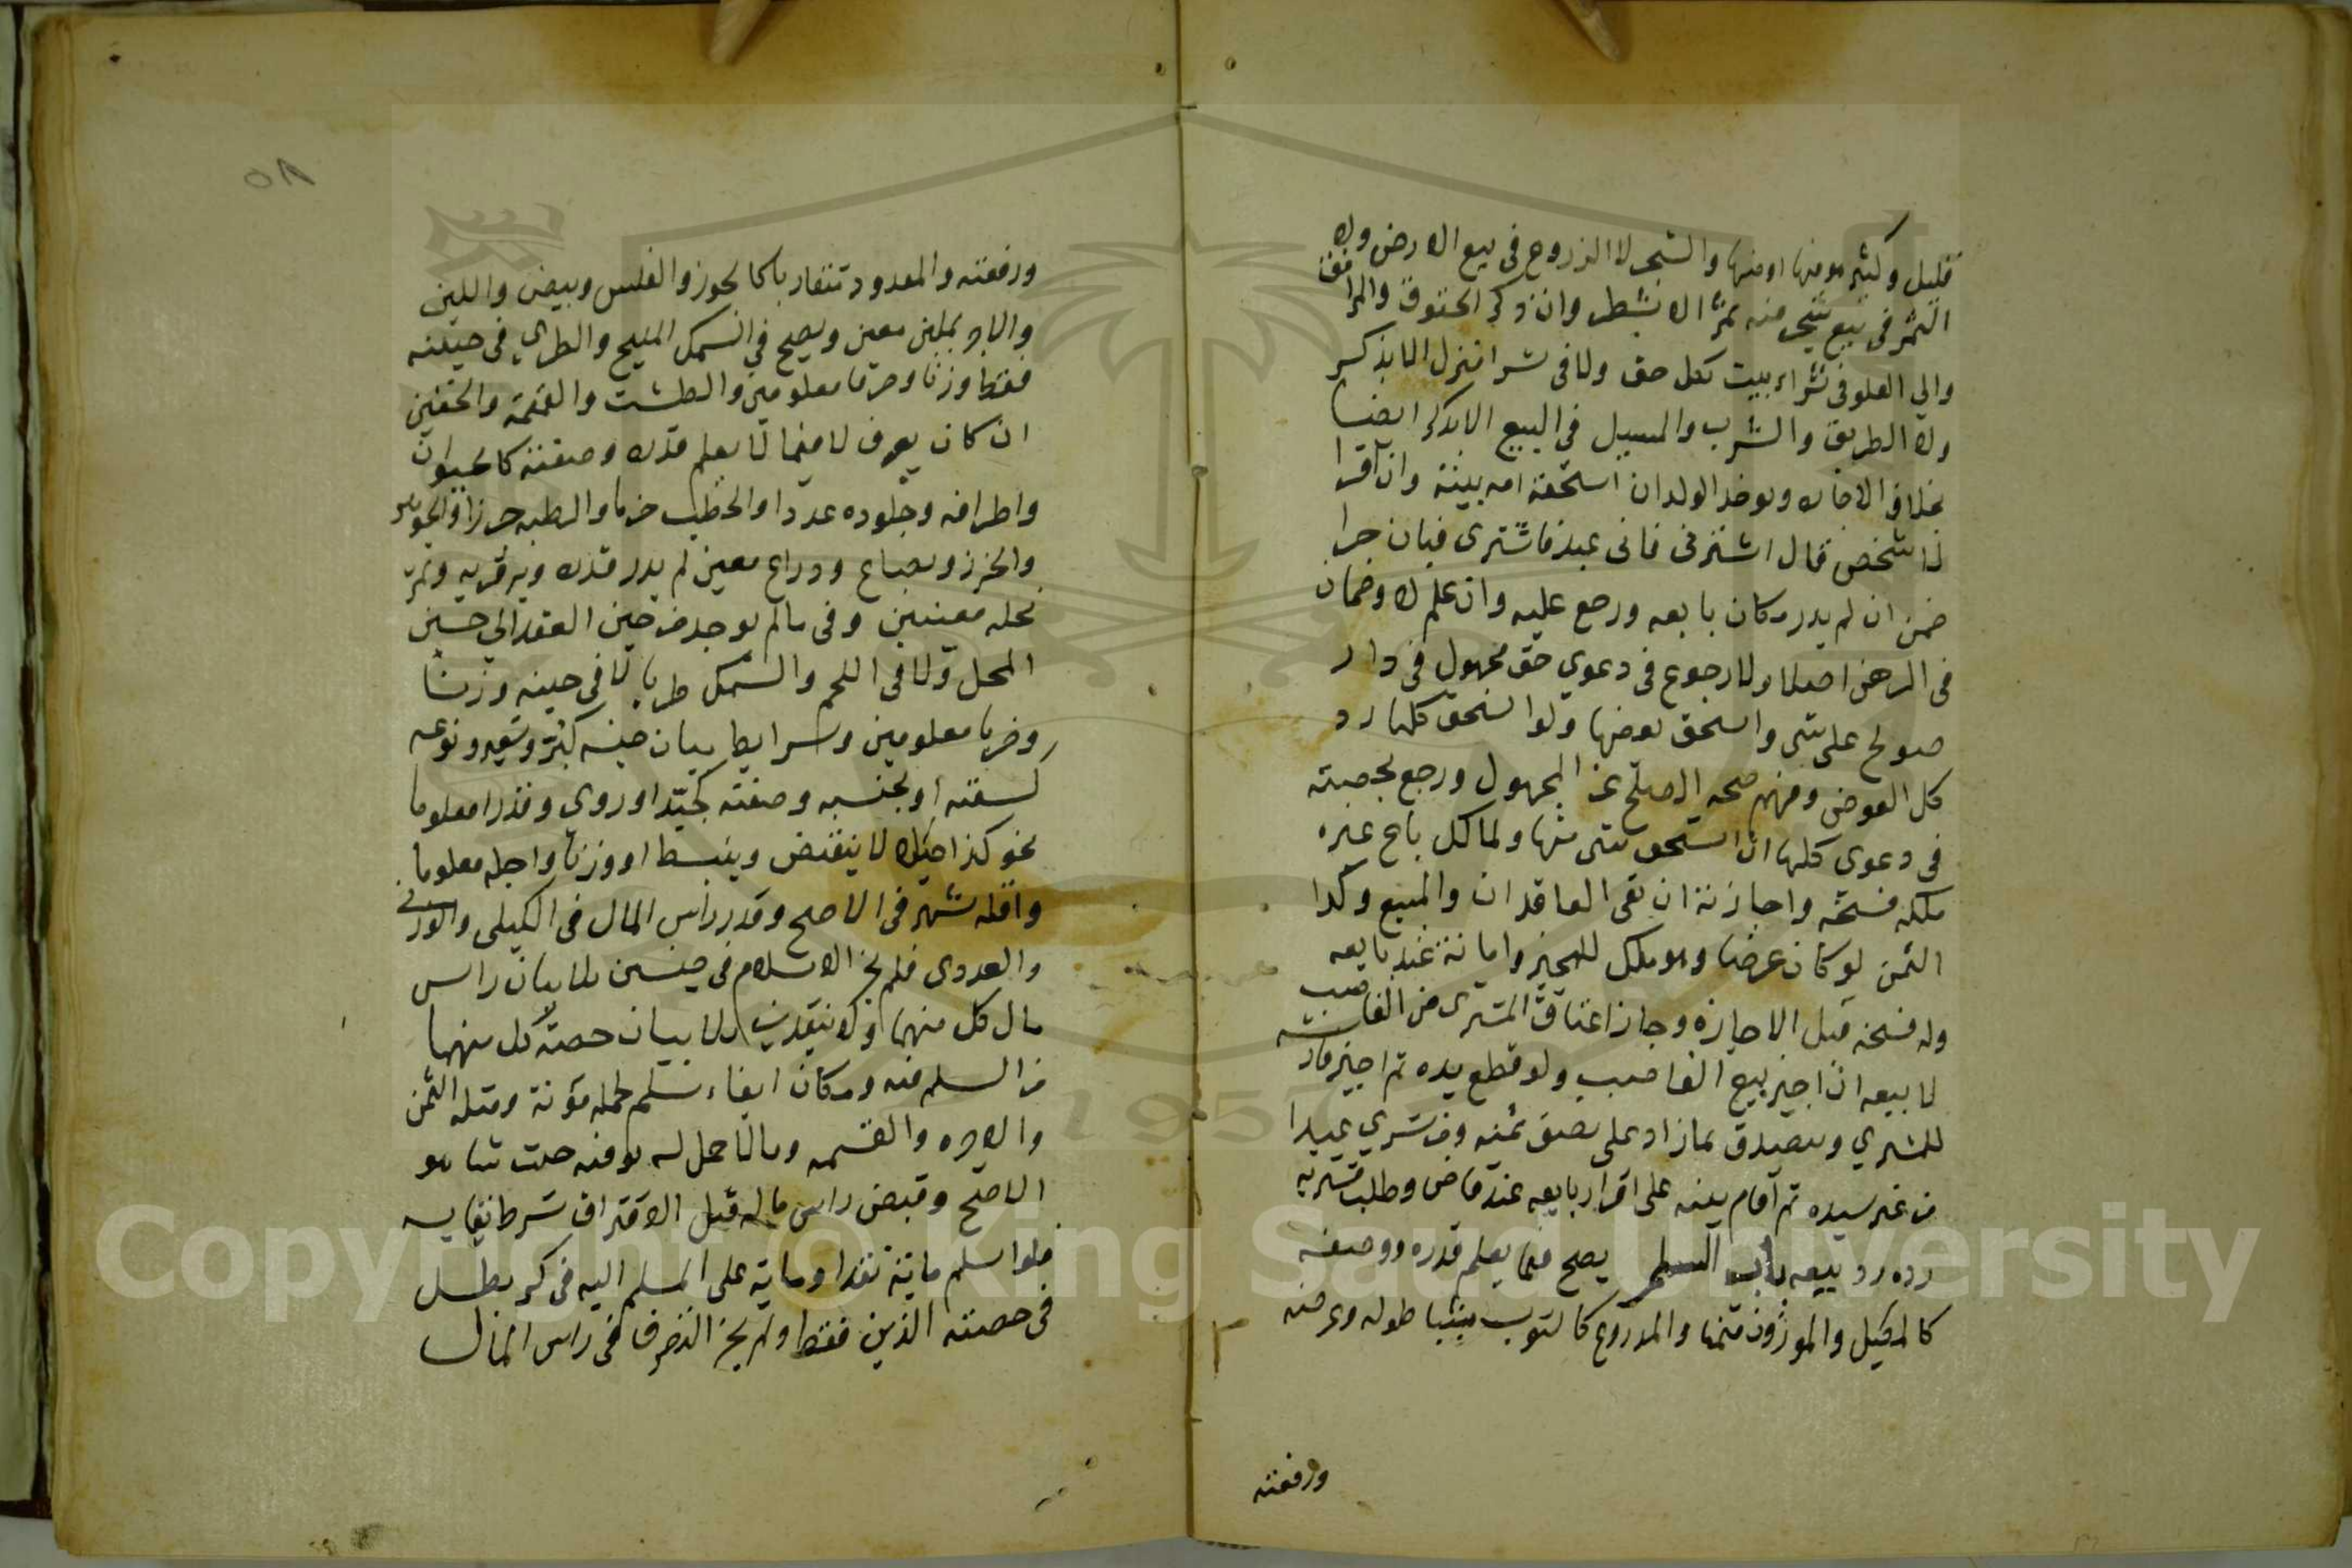 قليل وكثير هو فيها او منها والشجر لا الزروع في بيع الارض ولا
الثمر في بيع شجر منه ثمر الا بشرط وان ذكر الحقوق والمرافق
والى العلو في شراء بيت بكل حق ولا في شرا منزل الا بذكر
ولا الطريق والشرب والمسيل في البيع الا بذكر ايضا
بخلاف الاجارة ويوخذ الولدان استحقه امه ببينة وان اقرا
لذا شخص قال اشترني فاني عبد فاشترى فبان حرا
ضمن ان لم يدر مكان بايعه ورجع عليه وان علم لا وضمان
في الرهن اصلا ولا رجوع في دعوي حق مجهول في دار
صولح على شى واستحق بعضها ولو استحق كلها رد
كل العوض وفهم صحه الصلح عن المجهول ورجع بحصته
في دعوى كلها ان استحق شى منها ولمالك باع غيره
ملكه فسخه واجازته ان بقى العاقدان والمبيع وكذا
الثمن لو كان عرضا وهو ملك للمجيز وامانة عند بايعه
وله فسخه قبل الاجازة وجاز اعتاق المشترى من الغاصب
لا بيعه ان اجيز بيع الغاصب ولو قطع يده ثم اجيز فارشه
للمشتري وتصدق بما زاد على نصف ثمنه ومن شرى عبدا
من غير سيده ثم اقام بينه على اقرار بايعه عند قاض وطلب مشتريه
رده رد بيعه باب السلم يصح فيما يعلم قدره ووصفه
كالمكيل والموزون مثمنا والمدروع كالثوب مبينا طوله وعرضه
ورقعته
٥٨
ورقعته والمعدود متقاربا كالجوز والفلس وبيض واللبن
والاجر بملبن معين ويصح في السمك المليح والطري في حينه
فقط وزنا وضربا معلومين والطشت والقمقمة والخفين
ان كان يعرف لا فيما لا يعلم قدره وصفته كالحيوان
واطرافه وجلوده عددا والحطب حزما والرطبه جرزا والجوهر
والخرز وبصاع ودراع معين لم يدر قدره وبر قريه وثمر
نخله معينين وفى ما لم يوجد من حين العقد الى حين
المحل ولا في اللحم والسمك طريا لا في حينه وزنا
وضربا معلومين وشرايط بيان جنسه كبر وشعير ونوعه
كسقيه او بخسيه وصفته كجيد او ردى وقدرا معلوما
نحو كذا كيلا لا ينقبض وينبسط او وزنا واجله معلوما
واقله شهر في الاصح وقدر راس المال في الكيلى والوزنى
والعددى فلم يجز الاسلام في جنسين بلا بيان راس
مال كل منهما ولا بنقدين بلا بيان حصة كل منهما
من السلم فيه ومكان ايفاء مسلم لحمله مؤنة ومثله الثمن
والاجره والقسمه وما لا حمل له يوفيه حيث شا هو
الاصح وقبض راس ماله قبل الافتراق شرط بقايه
فلو اسلم ماية نقدا وماية على المسلم اليه في كر بطل
في حصته الدين فقط ولم يجز التصرف في راس المال